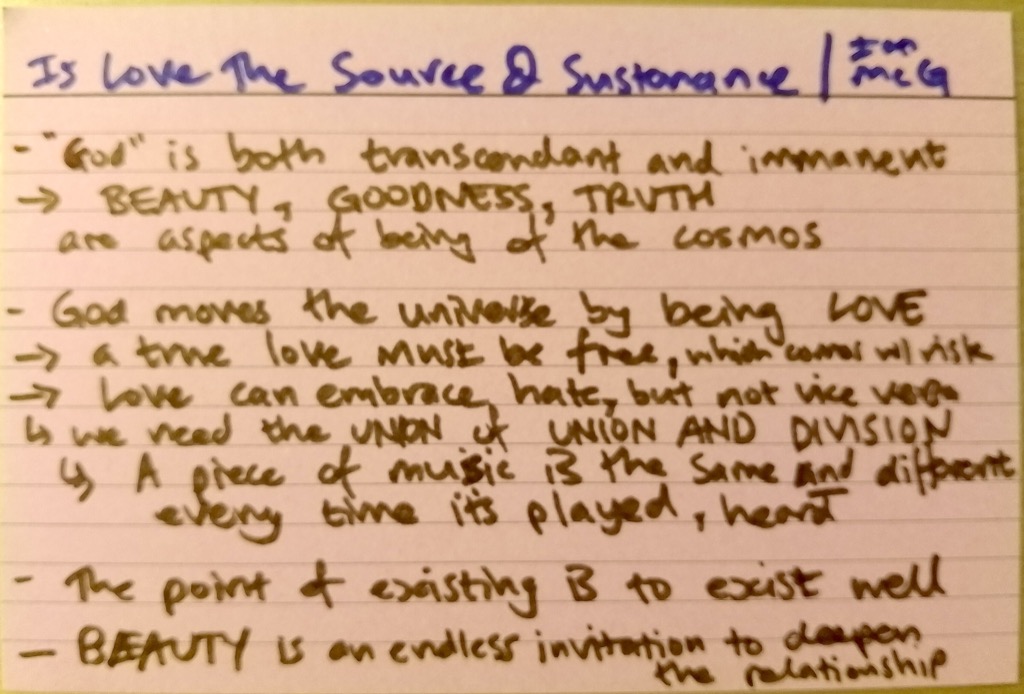 Is Love The Source & Sustonance | Ian McG
- "God" is both transcendant and immanent
→ BEAUTY, GOODNESS, TRUTH
are aspects of being of the cosmos
- God moves the universe by being LOVE
→ a true love must be free, which comes w/ risk
→ Love can embrace hate, but not vice versa
↳ we need the UNION of UNION AND DIVISION
↳ A piece of music is the same and different
every time it's played, heard
- The point of existing is to exist well
- BEAUTY is an endless invitation to deepen
the relationship